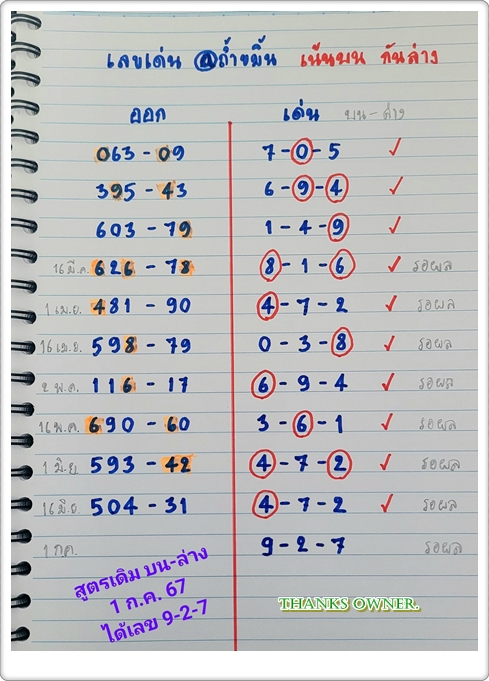 เลขเด่น @ถ้ำขมิ้น เน้นบน กันล่าง
ออก เด่น บน - ล่าง
063 - 09 7 - 0 - 5 ✓
395 - 43 6 - 9 - 4 ✓
603 - 79 1 - 4 - 9 ✓
16 มี.ค. 626 - 78 8 - 1 - 6 ✓ รอผล
1 เม.ย. 481 - 90 4 - 7 - 2 ✓ รอผล
16 เม.ย. 598 - 79 0 - 3 - 8 ✓ รอผล
2 พ.ค. 116 - 17 6 - 9 - 4 ✓ รอผล
16 พ.ค. 690 - 60 3 - 6 - 1 ✓ รอผล
1 มิ.ย 593 - 42 4 - 7 - 2 ✓ รอผล
16 มิ.ย 504 - 31 4 - 7 - 2 ✓ รอผล
1 ก.ค. 9 - 2 - 7 รอผล
สูตรเดิม บน-ล่าง
1 ก.ค. 67
ได้เลข 9-2-7
THANKS OWNER.